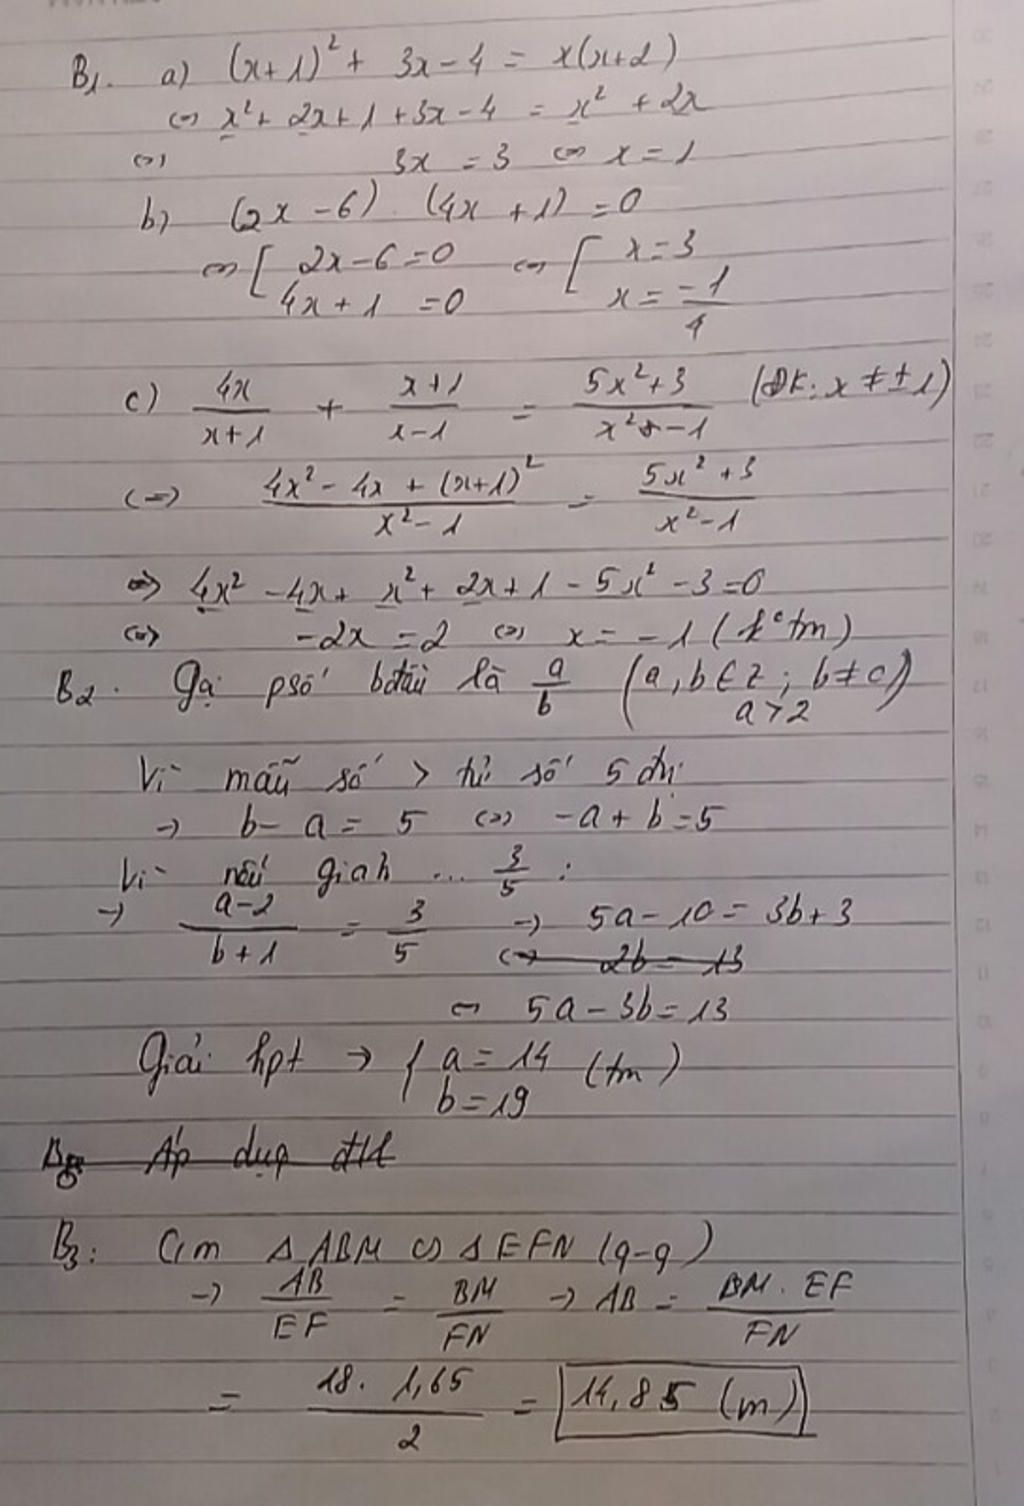 B1. a) (x+1)² + 3x - 4 = x(x+2)
<=> x² + 2x + 1 + 3x - 4 = x² + 2x
<=> 3x = 3 <=> x = 1
b) (2x - 6) . (4x + 1) = 0
<=> [ 2x - 6 = 0 <=> [ x = 3
4x + 1 = 0 x = -1/4
c) 4x/(x+1) + (x+1)/(x-1) = (5x²+3)/(x²-1) (ĐK: x ≠ ±1)
<=> (4x² - 4x + (x+1)²)/(x²-1) = (5x²+3)/(x²-1)
=> 4x² - 4x + x² + 2x + 1 - 5x² - 3 = 0
<=> -2x = 2 <=> x = -1 (k° tm)
B2. Gọi psố bđầu là a/b (a, b ∈ Z; b ≠ 0)
a > 2
Vì mẫu số > tử số 5 đvị
-> b - a = 5 <=> -a + b = 5
Vì nếu giảm ... 3/5 :
-> (a-2)/(b+1) = 3/5 -> 5a - 10 = 3b + 3
<=> 2b = 13
<=> 5a - 3b = 13
Giải hpt -> { a = 14 (tm)
b = 19
Áp dụng
B3: C/m Δ ABM ∽ Δ EFN (g-g)
-> AB/EF = BM/FN -> AB = (BM . EF)/FN
= (18 . 1,65)/2 = 14,85 (m)